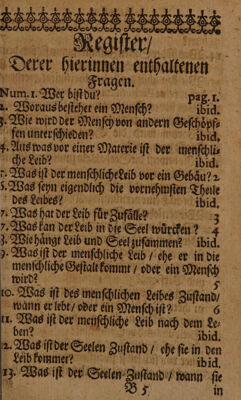 Register/
Derer hierinnen enthaltenen
Fragen.
Num. 1. Wer bist du? pag. 1.
2. Woraus bestehet ein Mensch? ibid.
3. Wie wird der Mensch von andern Geschöpf-
fen unterschieden? ibid.
4. Aus was vor einer Materie ist der menschli-
che Leib? ibid.
5. Was ist der menschliche Leib vor ein Gebäu? 2
6. Was seyn eigendlich die vornehmsten Theile
des Leibes? ibid.
7. Was hat der Leib für Zufälle? 3
7. Was kan der Leib in die Seel würcken? 4
8. Wie hängt Leib und Seel zusammen? ibid.
9. Was ist der menschliche Leib / ehe er in die
menschliche Gestalt kommt / oder ein Mensch
wird? 5
10. Was ist des menschlichen Leibes Zustand /
wann er lebt / oder ein Mensch ist? 6
11. Was ist der menschliche Leib nach dem Le-
ben? ibid.
12. Was ist der Seelen Zustand / ehe sie in den
Leib kommet? ibid.
13. Was ist der Seelen Zustand / wann sie
B 5 in